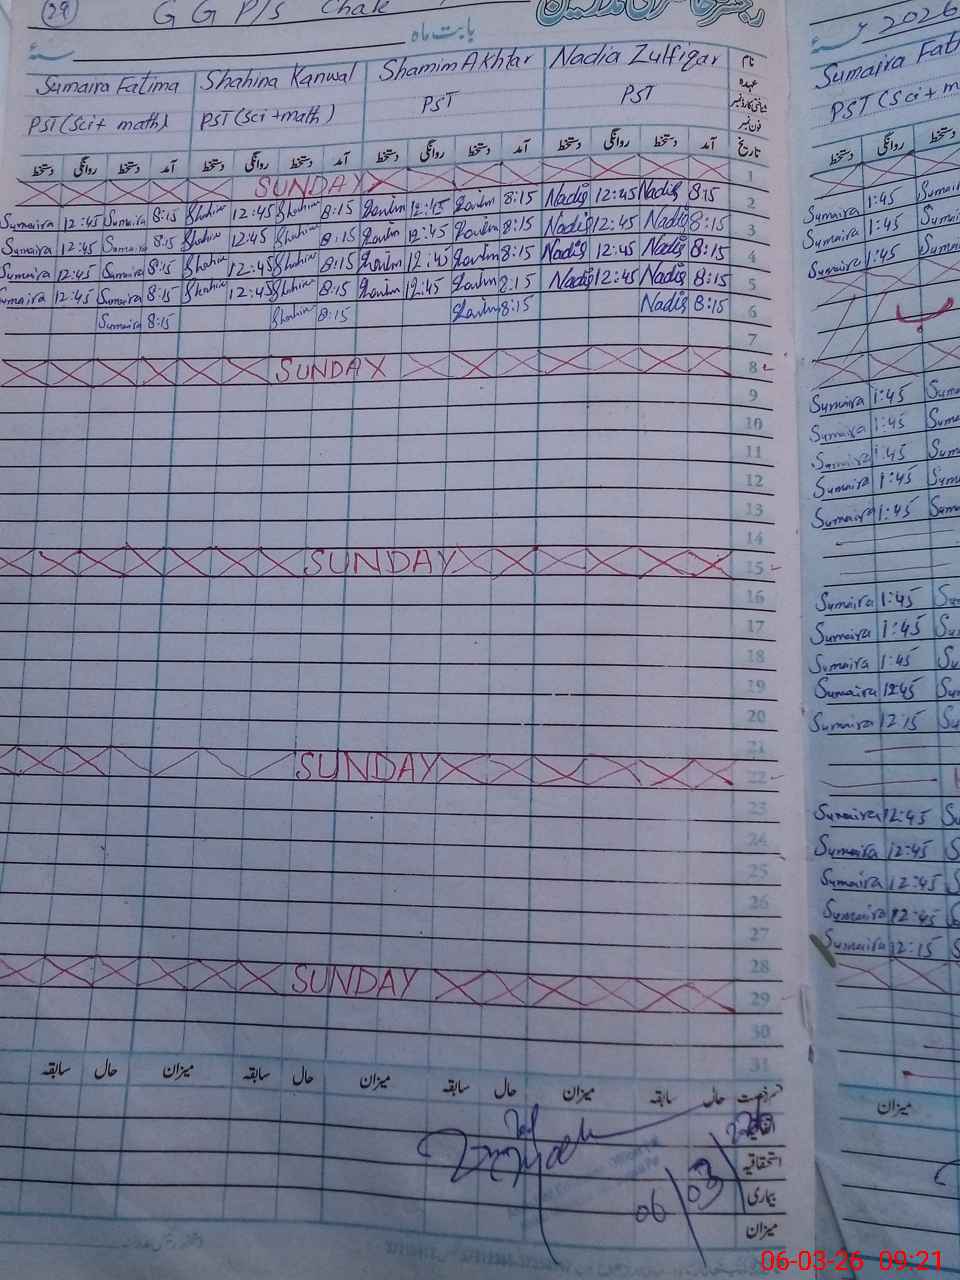 (29) G G P/S Chak
رجسٹر حاضری مدرسین
بابت ماہ سنہ 2026
Sumaira Fatima Shahina Kanwal Shamim Akhtar Nadia Zulfiqar نام Sumaira
PST (Sci + math) PST (Sci + math) PST PST عہدہ PST (Sci + m
فون نمبر
دستخط روانگی دستخط آمد دستخط روانگی دستخط آمد دستخط روانگی دستخط آمد دستخط روانگی دستخط آمد تاریخ دستخط روانگی دستخط
SUNDAY 1
Sumaira 12:45 Sumaira 8:15 Shahina 12:45 Shahina 8:15 Shamim 12:45 Shamim 8:15 Nadia 12:45 Nadia 8:15 2 Sumaira 1:45
Sumaira 12:45 Sumaira 8:15 Shahina 12:45 Shahina 8:15 Shamim 12:45 Shamim 8:15 Nadia 12:45 Nadia 8:15 3 Sumaira 1:45
Sumaira 12:45 Sumaira 8:15 Shahina 12:45 Shahina 8:15 Shamim 12:45 Shamim 8:15 Nadia 12:45 Nadia 8:15 4 Sumaira 1:45
Sumaira 12:45 Sumaira 8:15 Shahina 12:45 Shahina 8:15 Shamim 12:45 Shamim 8:15 Nadia 12:45 Nadia 8:15 5
Sumaira 8:15 Shahina 8:15 Shamim 8:15 Nadia 8:15 6
7
SUNDAY 8
9 Sumaira 1:45
10 Sumaira 1:45
11 Sumaira 1:45
12 Sumaira 1:45
13 Sumaira 1:45
14
SUNDAY 15
16 Sumaira 1:45
17 Sumaira 1:45
18 Sumaira 1:45
19 Sumaira 12:45
20 Sumaira 12:15
21
SUNDAY 22
23 Sumaira 12:45
24 Sumaira 12:45
25 Sumaira 12:45
26 Sumaira 12:45
27 Sumaira 12:15
28
SUNDAY 29
30
31
سابقہ حال میزان سابقہ حال میزان سابقہ حال میزان سابقہ حال رخصت میزان
اتفاقیہ
استحقاقیہ
06/03/26 بیماری
میزان
06-03-26 09:21